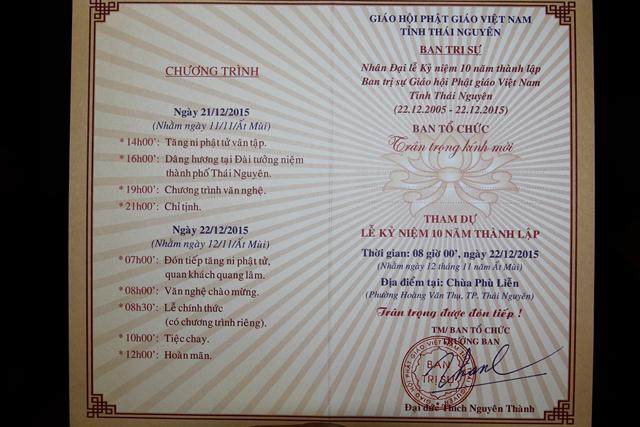 CHƯƠNG TRÌNH
Ngày 21/12/2015
(Nhằm ngày 11/11/Ất Mùi)
* 14h00': Tăng ni phật tử vân tập.
* 16h00': Dâng hương tại Đài tưởng niệm
thành phố Thái Nguyên.
* 19h00': Chương trình văn nghệ.
* 21h00': Chỉ tịnh.
Ngày 22/12/2015
(Nhằm ngày 12/11/Ất Mùi)
* 07h00': Đón tiếp tăng ni phật tử,
quan khách quang lâm.
* 08h00': Văn nghệ chào mừng.
* 08h30': Lễ chính thức
(có chương trình riêng).
* 10h00': Tiệc chay.
* 12h00': Hoàn mãn.
GIÁO HỘI PHẬT GIÁO VIỆT NAM
TỈNH THÁI NGUYÊN
BAN TRỊ SỰ
Nhân Đại lễ Kỷ niệm 10 năm thành lập
Ban trị sự Giáo hội Phật giáo Việt Nam
Tỉnh Thái Nguyên
(22.12.2005 - 22.12.2015)
BAN TỔ CHỨC
Trân trọng kính mời
THAM DỰ
LỄ KỶ NIỆM 10 NĂM THÀNH LẬP
Thời gian: 08 giờ 00', ngày 22/12/2015
(Nhằm ngày 12 tháng 11 năm Ất Mùi)
Địa điểm tại: Chùa Phù Liễn
(Phường Hoàng Văn Thụ, TP. Thái Nguyên)
Trân trọng được đón tiếp !
TM/ BAN TỔ CHỨC
TRƯỞNG BAN
BAN
TRỊ SỰ
Đại đức Thích Nguyên Thành